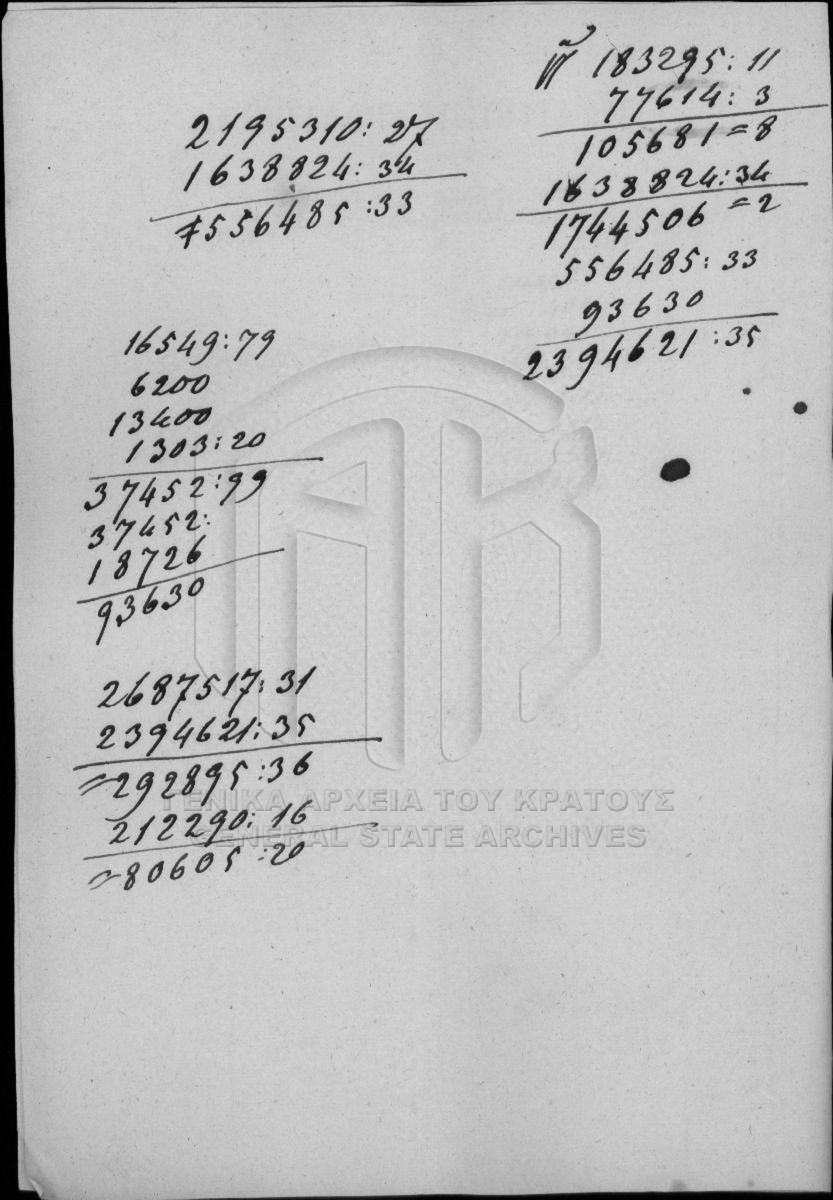 2195310: 27
1638824: 34
7556485 :33
16549: 79
6200
13400
1303: 20
37452: 99
37452:
18726
93630
2687517: 31
2394621: 35
=292895 :36
212290: 16
=80605 :20
183295: 11
77614: 3
105681 = 8
1638824: 34
1744506 = 2
556485: 33
93630
2394621 :35
ΓΕΝΙΚΑ ΑΡΧΕΙΑ ΤΟΥ ΚΡΑΤΟΥΣ
GENERAL STATE ARCHIVES